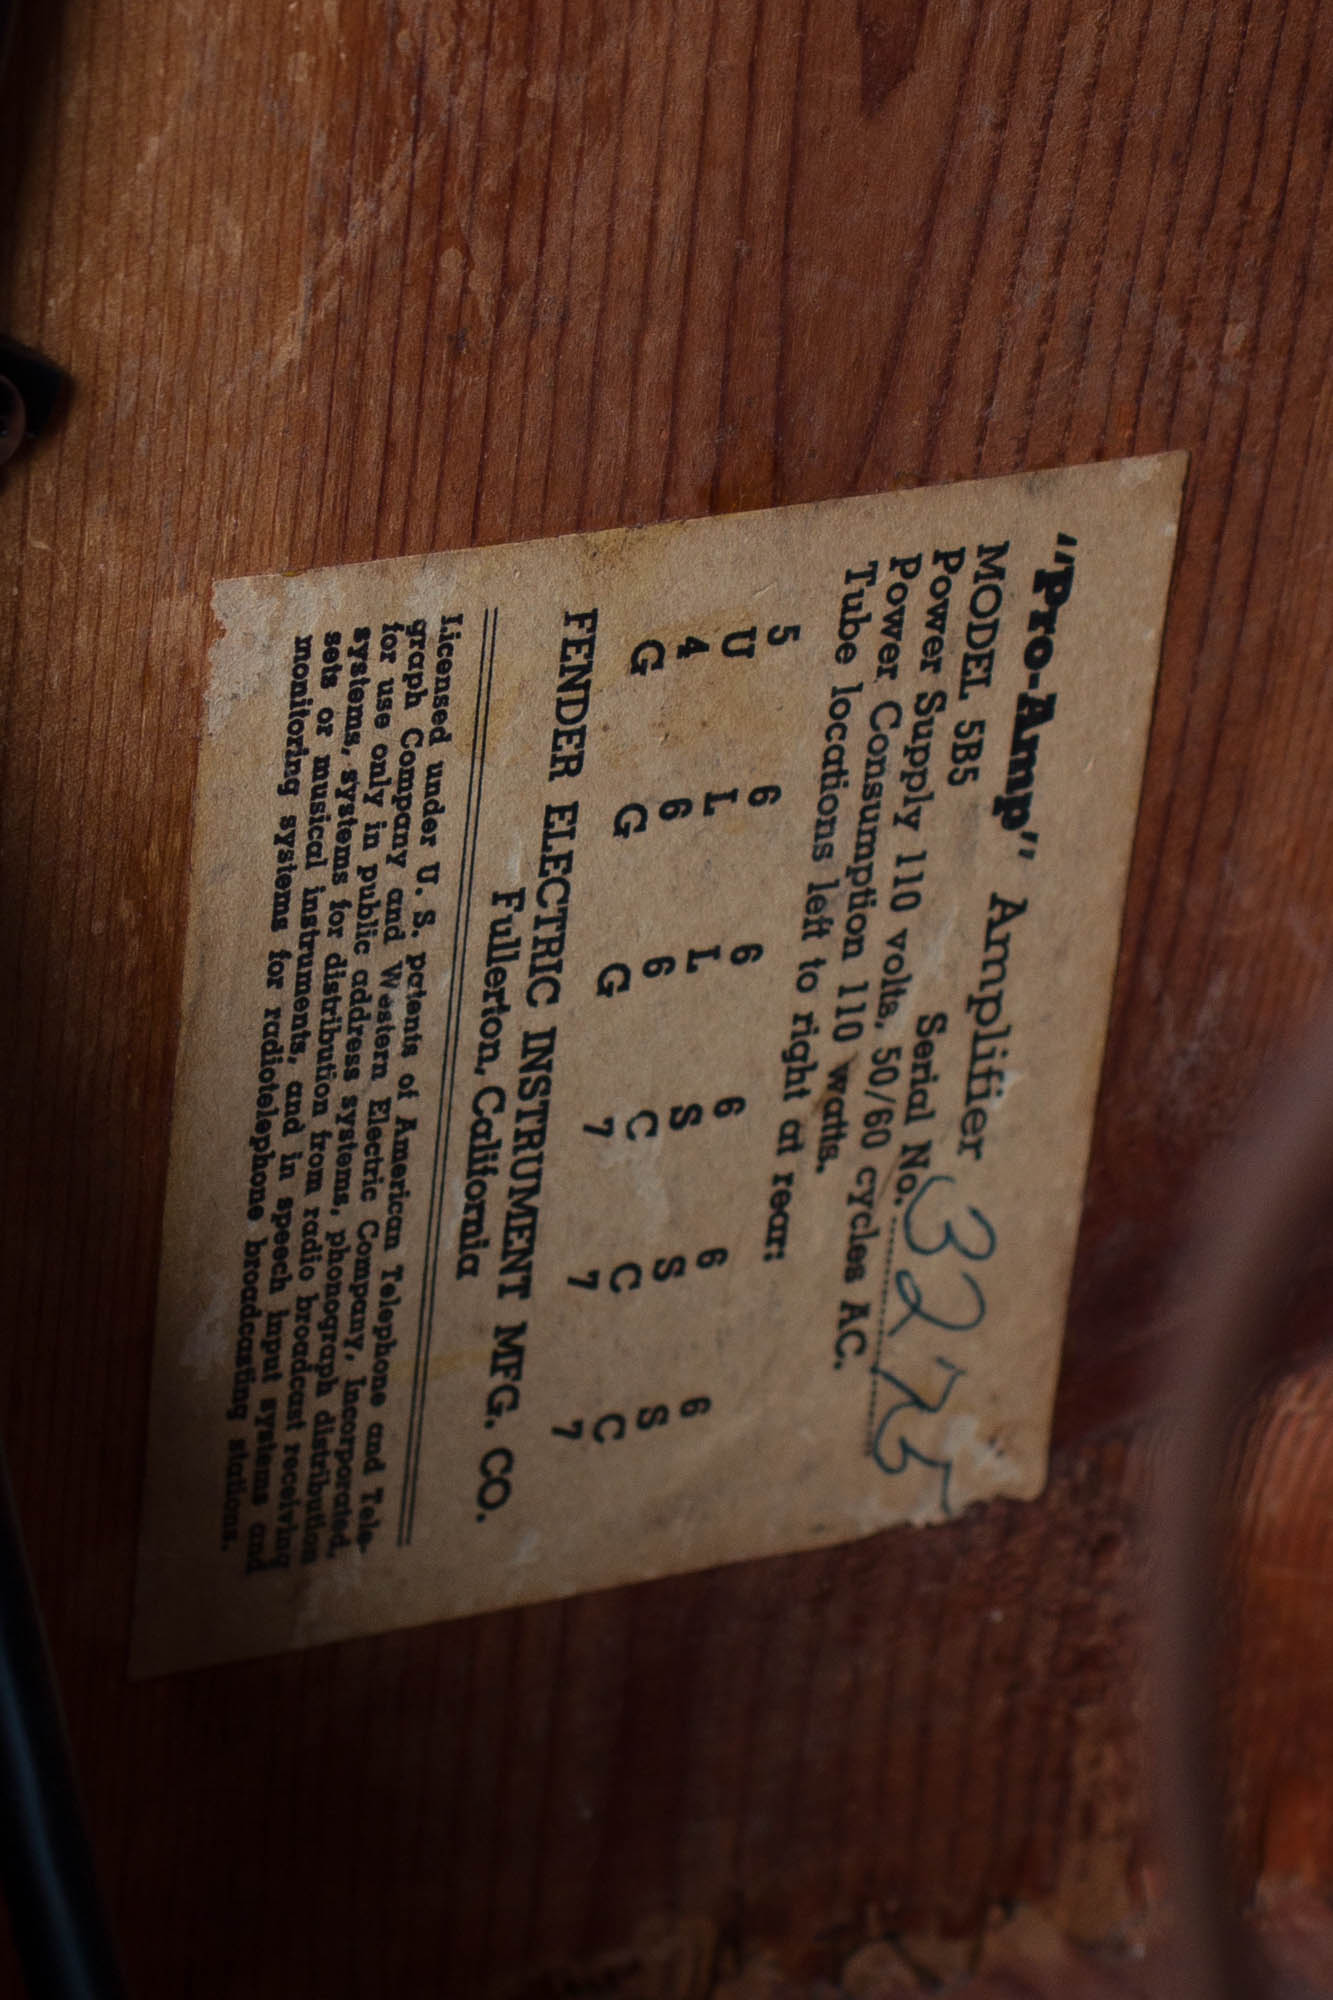 "Pro-Amp" Amplifier
MODEL 5B5 Serial No. 3225
Power Supply 110 volts, 50/60 cycles AC.
Power Consumption 110 watts.
Tube locations left to right at rear:
5 6 6 6 6 6
U L L S S S
4 6 6 C C C
G G G 7 7 7
FENDER ELECTRIC INSTRUMENT MFG. CO.
Fullerton, California
Licensed under U. S. patents of American Telephone and Tele-
graph Company and Western Electric Company, Incorporated,
for use only in public address systems, phonograph distribution
systems, systems for distribution from radio broadcast receiving
sets or musical instruments, and in speech input systems and
monitoring systems for radiotelephone broadcasting stations.